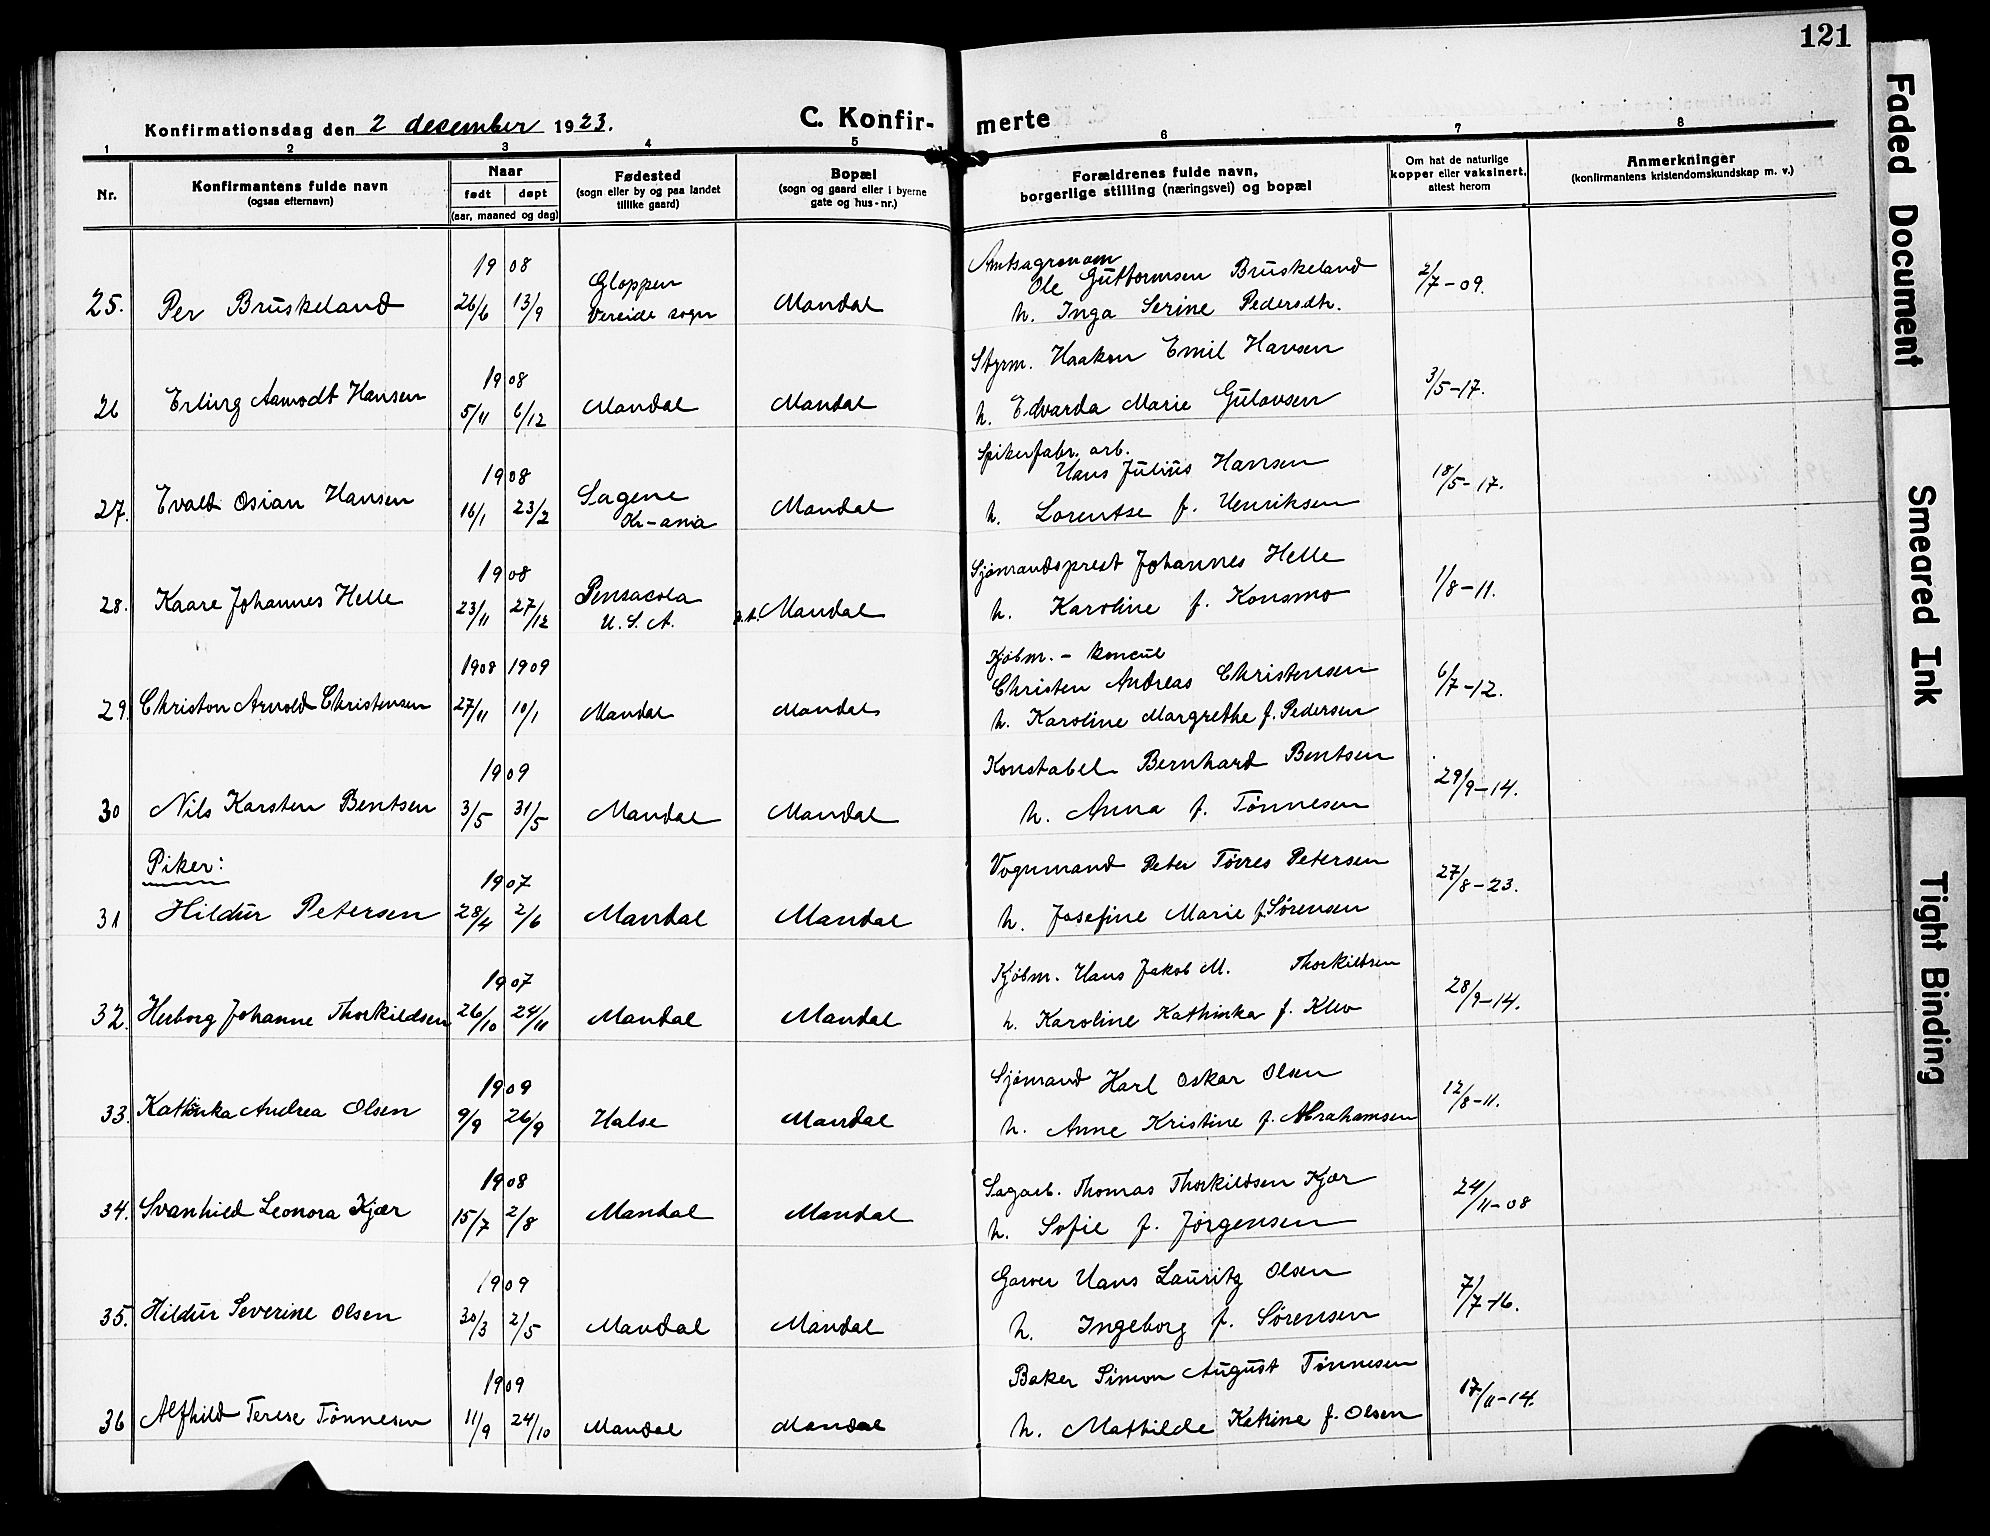 121
Konfirmationsdag den 2 december 1923.
C. Konfir-
merte
1 2 3 4 5 6 7 8
Nr.
Konfirmantens fulde navn
(ogsaa efternavn)
Naar
født døpt
(aar, maaned og dag)
Fødested
(sogn eller by og paa landet
tillike gaard)
Bopæl
(sogn og gaard eller i byerne
gate og hus-nr.)
Forældrenes fulde navn,
borgerlige stilling (næringsvei) og bopæl
Om hat de naturlige
kopper eller vaksinert,
attest herom
Anmerkninger
(konfirmantens kristendomskundskap m. v.)
1908 Gloppen Amtsagronom
25. Per Bruskeland 26/6 13/9 Vereide sogn Mandal Ole Guttormsen Bruskeland 2/7-09.
h. Inga Serine Pedersdtr.
1908 Styrm. Haakon Emil Hansen
26 Erling Aamodt Hansen 5/11 6/12 Mandal Mandal h. Edvarda Marie Gulovsen 3/5-17.
1908 Spikerfabr. arb.
Hans Julius Hansen
27. Evald Osian Hansen 16/1 23/2 Sagene Mandal h. Lorentse f. Henriksen 18/5-17.
Kr-ania
1908 Sjømandsprest Johannes Helle
28. Kaare Johannes Helle 23/11 27/12 Pensacola Mandal h. Karoline f. Konsmo 1/8-11.
U.S.A.
1908 1909 Kjøbm. - konsul
Christen Andreas Christensen
29. Christen Arnold Christensen 27/11 10/1 Mandal Mandal h. Karoline Margrethe f. Pedersen 6/7-12.
1909 Konstabel Bernhard Bentsen
30 Nils Karsten Bentsen 3/5 31/5 Mandal Mandal h. Anna f. Tønnesen 29/9-14.
Piker:
1907 Vognmand Peter Tørres Petersen
31 Hildur Petersen 28/4 2/6 Mandal Mandal h. Josefine Marie f. Sørensen 27/8-23.
1907 Kjøbm. Hans Jakob M. Thorkildsen
32. Herborg Johanne Thorkildsen 26/10 24/11 Mandal Mandal h. Karoline Kathinka f. Klev 28/9-14.
1909 Sjømand Karl Oskar Olsen
33. Kathinka Andrea Olsen 9/9 26/9 Halse Mandal h. Anne Kristine f. Abrahamsen 12/8-11.
1908 Sagarb. Thomas Thorkildsen Kjær
34. Svanhild Leonora Kjær 15/7 2/8 Mandal Mandal h. Sofie f. Jørgensen 24/11-08
1909 Garver Hans Lauritz Olsen
35. Hildur Severine Olsen 30/3 2/5 Mandal Mandal h. Ingeborg f. Sørensen 7/7-16.
1909 Baker Simon August Tønnesen
36 Alfhild Terese Tønnesen 11/9 24/10 Mandal Mandal h. Mathilde Katrine f. Olsen 17/11-14.
Faded Document
Smeared Ink
Tight Binding